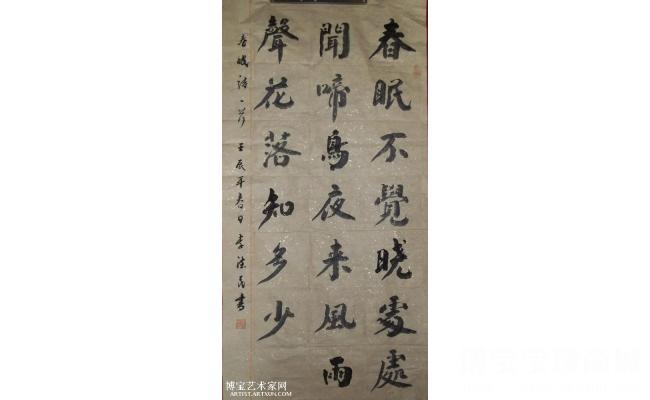 春眠不覺曉處處
聞啼鳥夜来風雨
聲花落知多少
春曉詩一首 壬辰年春日 李法民書
博宝艺术家网
ARTIST.ARTXUN.COM